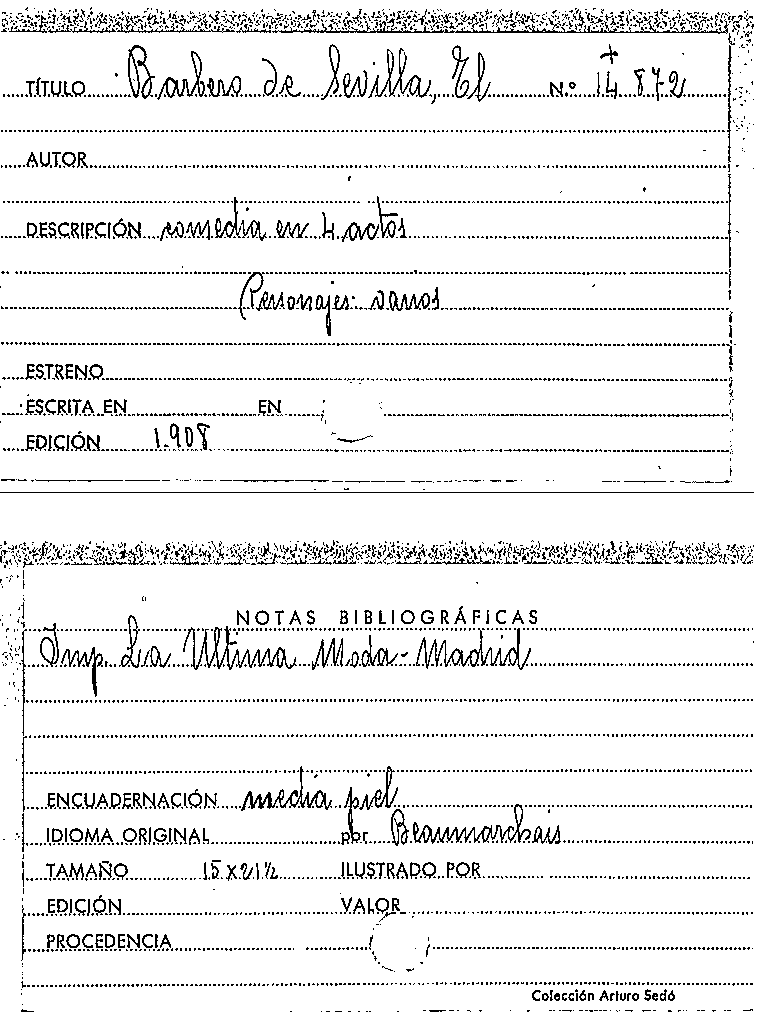 TÍTULO Barbero de Sevilla, El N.º 14872
AUTOR
DESCRIPCIÓN comedia en 4 actos
Personajes: varios
ESTRENO
ESCRITA EN EN
EDICIÓN 1.908
NOTAS BIBLIOGRÁFICAS
Imp. La Ultima Moda - Madrid
ENCUADERNACIÓN media piel
IDIOMA ORIGINAL por Beaumarchais
TAMAÑO 15 x 21½ ILUSTRADO POR
EDICIÓN VALOR
PROCEDENCIA
Colección Arturo Sedó